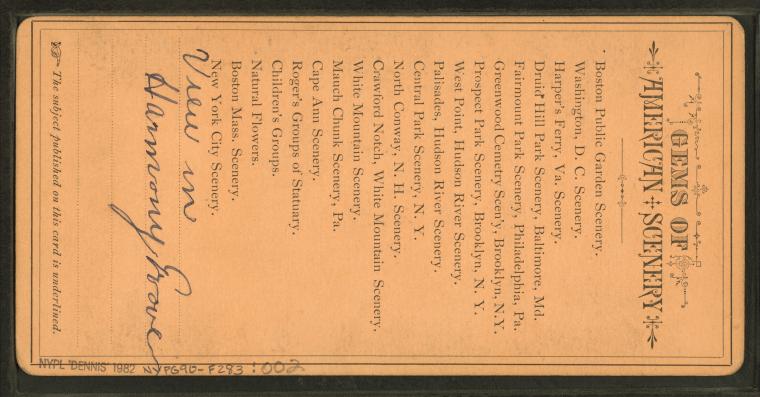 GEMS OF
AMERICAN SCENERY
Boston Public Garden Scenery.
Washington, D. C. Scenery.
Harper's Ferry, Va. Scenery.
Druid Hill Park Scenery, Baltimore, Md.
Fairmount Park Scenery, Philadelphia, Pa.
Greenwood Cemetry Scen'y, Brooklyn, N.Y.
Prospect Park Scenery, Brooklyn, N. Y.
West Point, Hudson River Scenery.
Palisades, Hudson River Scenery.
Central Park Scenery, N. Y.
North Conway, N. H. Scenery.
Crawford Notch, White Mountain Scenery.
White Mountain Scenery.
Mauch Chunk Scenery, Pa.
Cape Ann Scenery.
Roger's Groups of Statuary.
Children's Groups.
Natural Flowers.
Boston Mass. Scenery.
New York City Scenery.
View in
Harmony Grove
The subject published on this card is underlined.
NYPL 'DENNIS' 1982 NYPG90-F283 :002